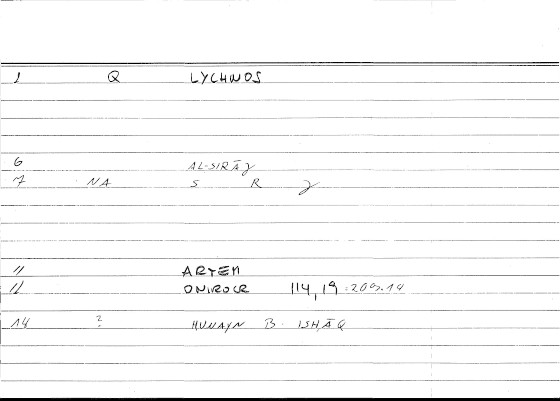 1 Q LYCHNOS
6 AL-SIRĀǧ
7 NA S R ǧ
11 ARTEM
12 ONIROCR 114,19 :209.14
14 ? ḤUNAYN B. ISḤĀQ